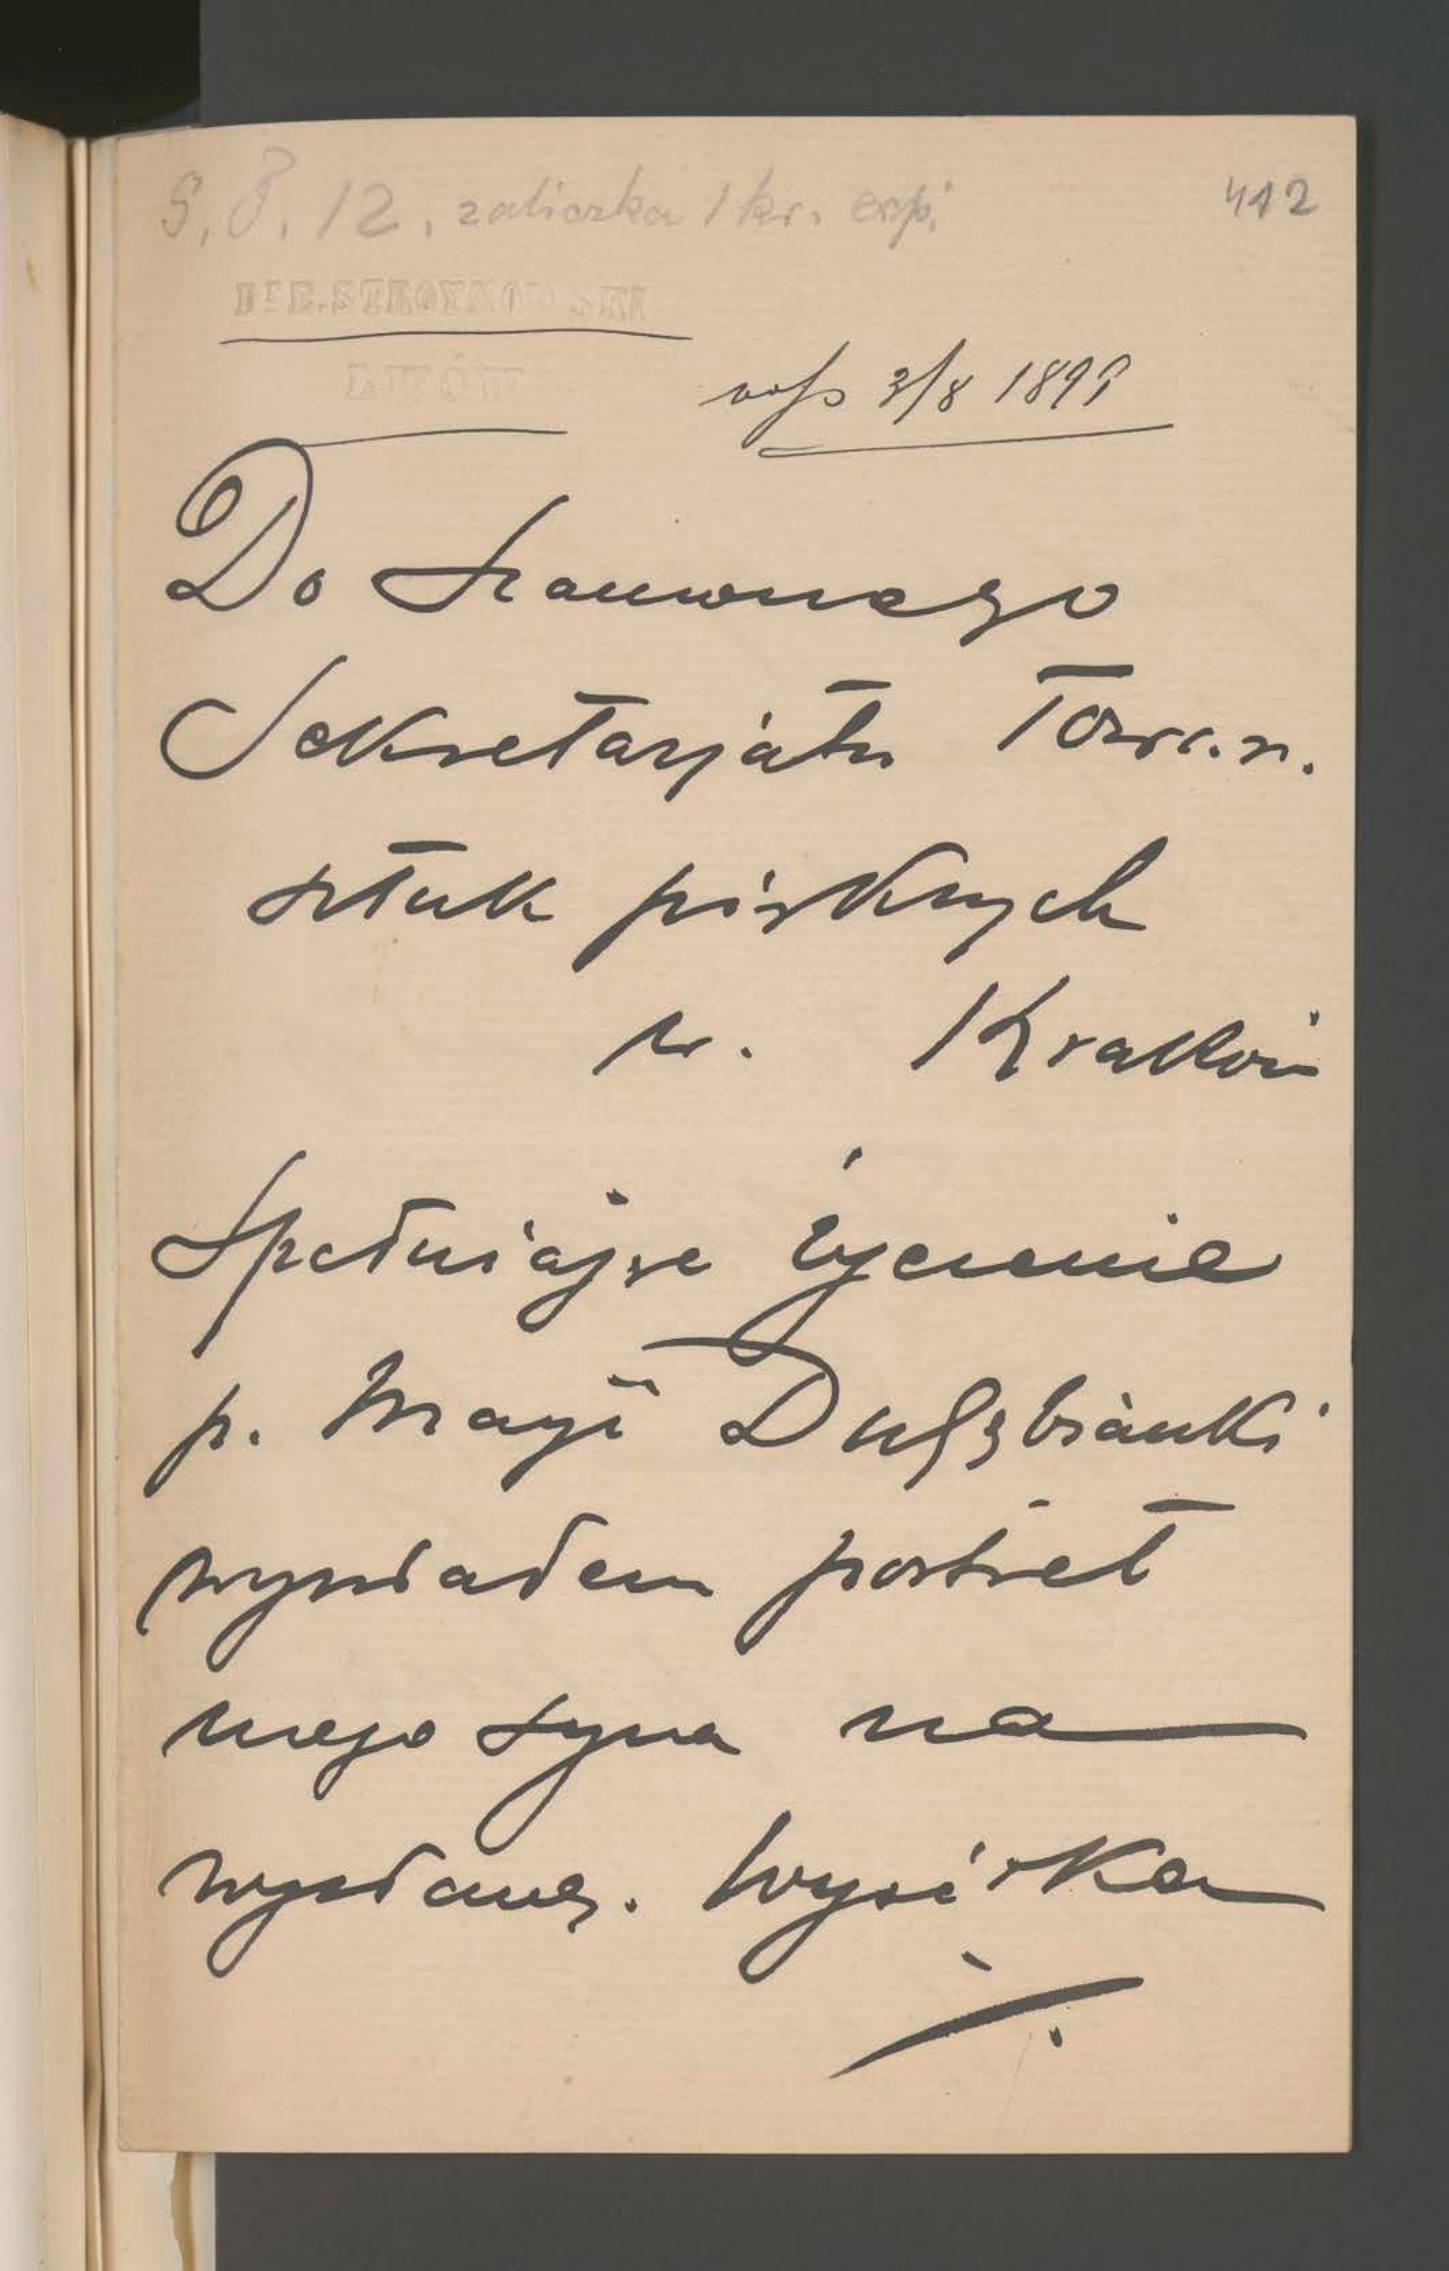 S. 8. 12. zaliczka 1 kr. exp.
412
Dr E. STROYNOWSKI
LWÓW
3/8 1899
Do Szanownego
Sekretarjatu Tow. n.
sztuk pięknych
w. Krakowi
Spełniając życzenie
p. Maryi Dulębianki
wysłałem portret
mego syna na
wystawę. Wysiłka